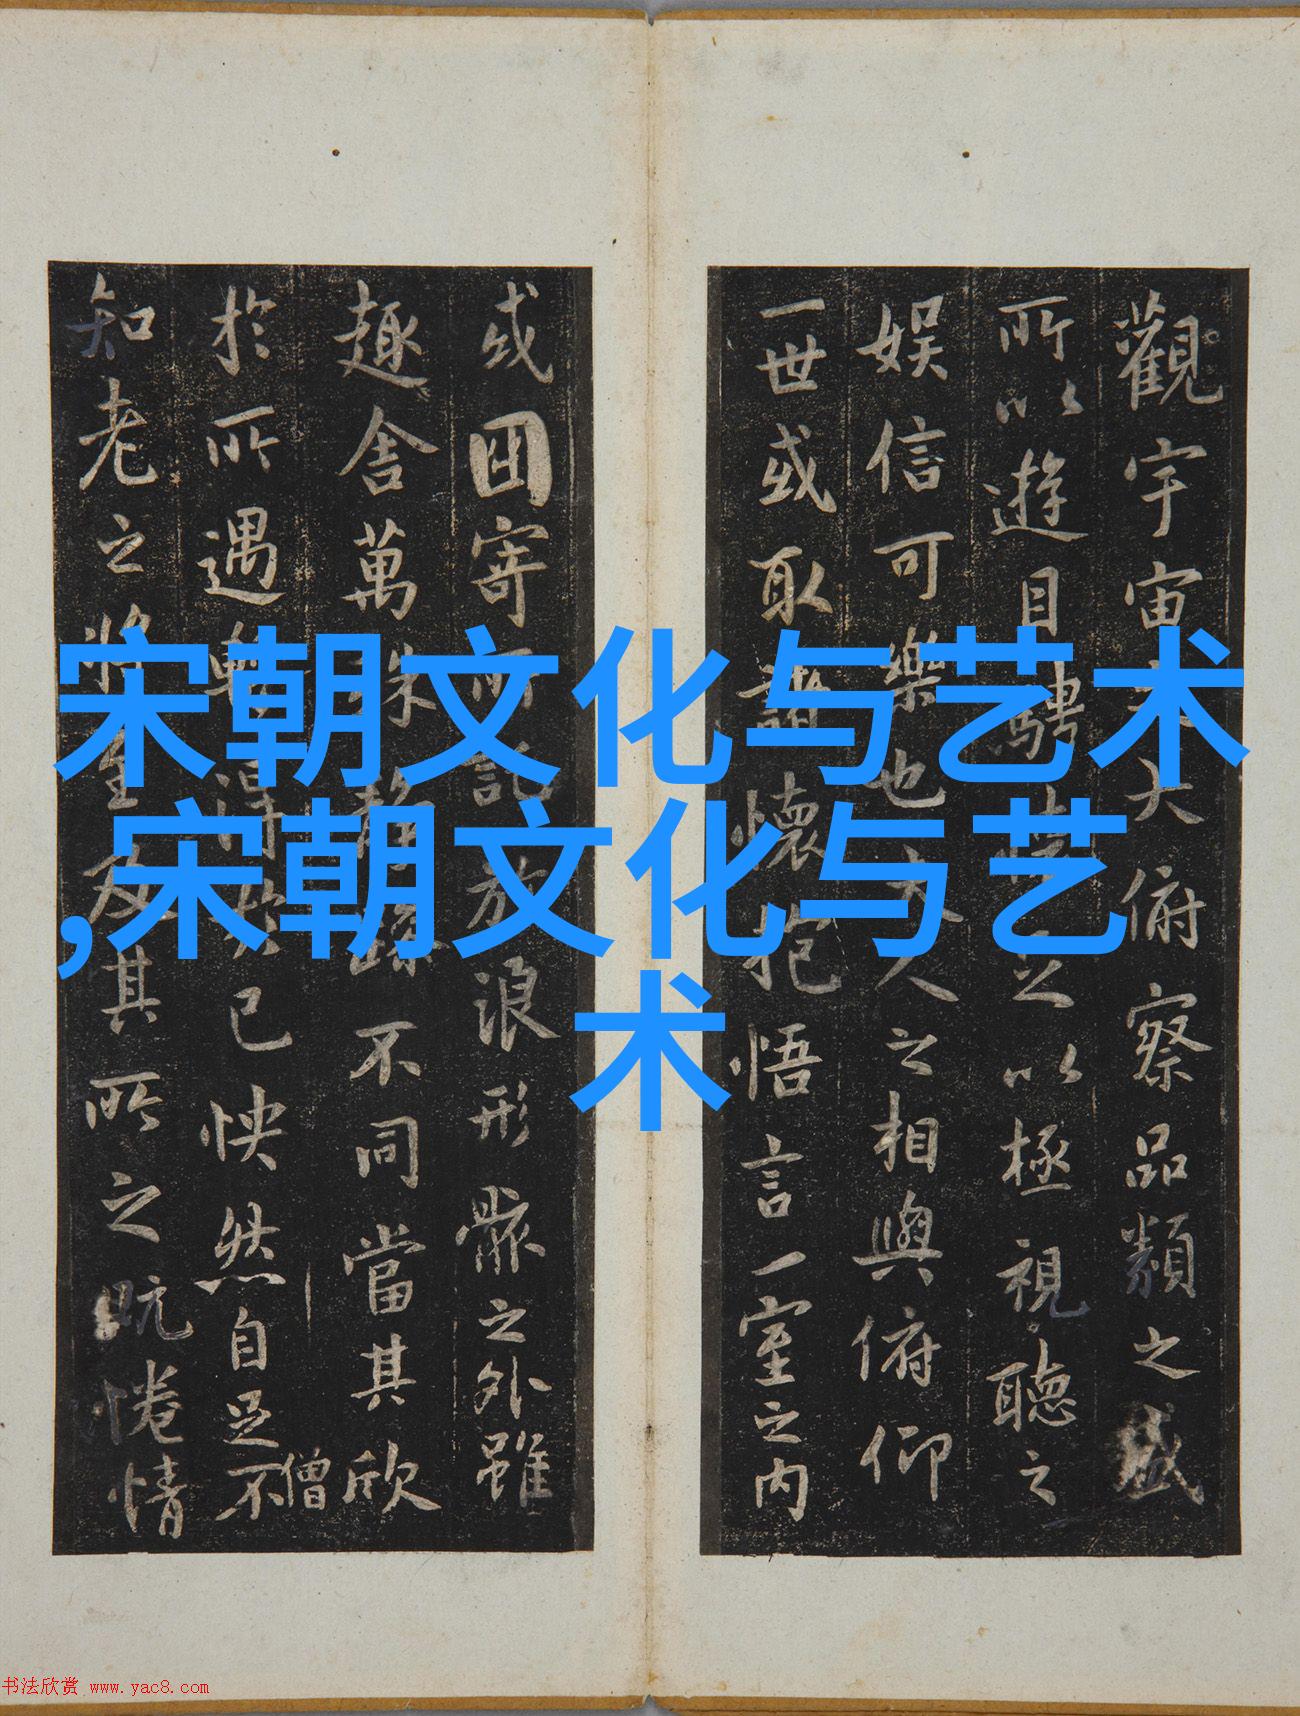 觀宇宙大俯察品類之盛
所以遊目騁以極視聽之
娱信可樂也夫人之相與俯仰
一世或取諸懷抱悟言一室之内
或因寄所託放浪形骸之外雖
趣舍萬殊静躁不同當其欣
僧
於所遇暫得於己快然自足不
知老之將至及其所之既惓情
宋朝文化与艺术
,宋朝文化与艺
术
书法欣赏 www.yac8.com